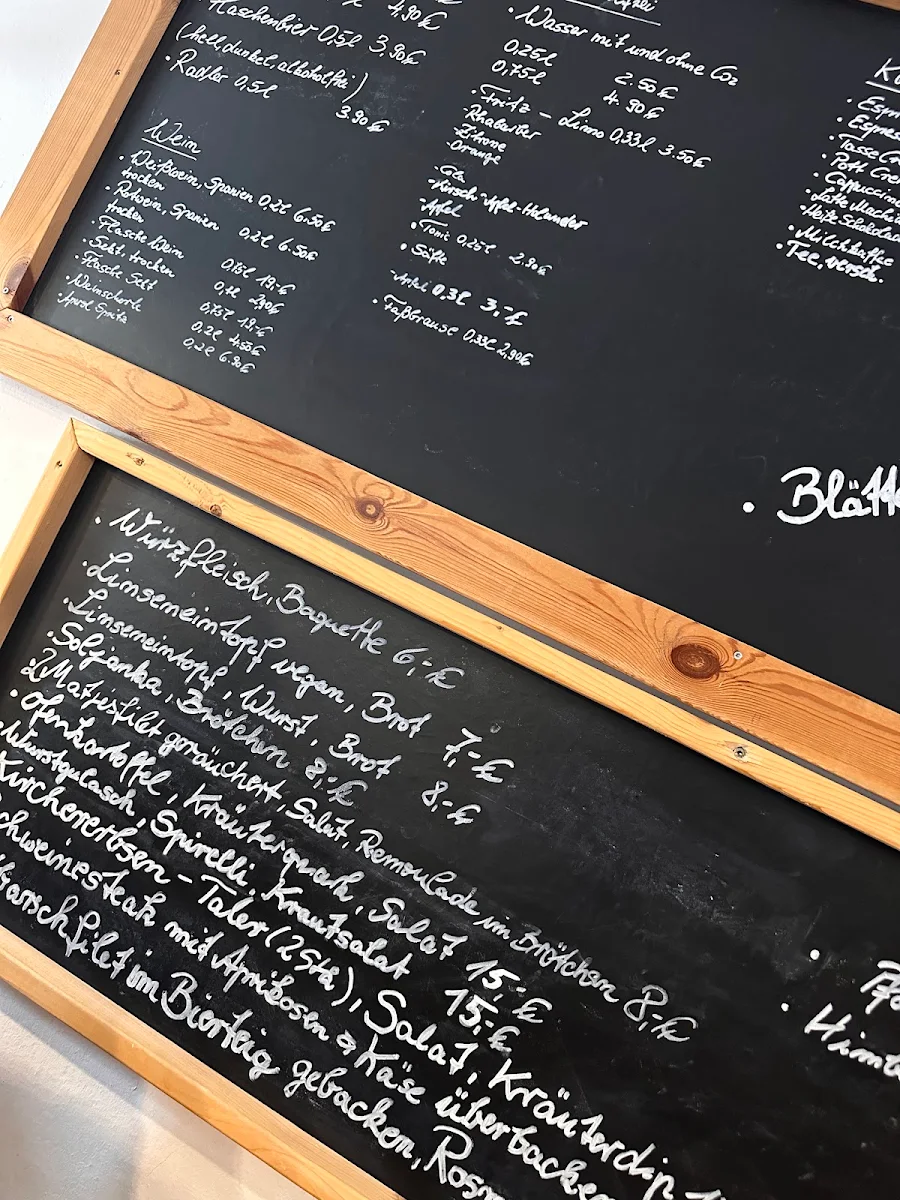 4,90 €
Flaschenbier 0,5l 3,90€
(hell, dunkel, alkoholfrei)
• Radler 0,5l 3.90 €
Wein
• Weißwein, Spanien 0,2l 6.50€
trocken
• Rotwein, Spanien 0,2l 6.50€
trocken
• Flasche Wein 0,75l 19,-€
• Sekt, trocken 0,1l 2,90€
• Flasche Sekt 0,75l 19,-€
• Weinschorle 0,2l 4,50€
Aperol Spritz 0,2l 6.90€
• Wasser mit und ohne Co2
0,25l 2.50€
0,75l 4.90€
• Fritz - Limo 0,33l 3.50€
Rhabarber
-Zitrone
-Orange
-Cola
-Kirsch-Apfel-Holunder
-Apfel
• Tonic 0,25l 2,90€
• Säfte
-Apfel 0,3l 3,-€
• Faßbrause 0,33l 2,90€
• Espr
• Espres
• Tasse Cr
• Pott Cre
• Cappuccin
• Latte Macchi
• Heiße Schokolad
• Milchkaffee
• Tee, versch.
• Blätt
• Würzfleisch, Baguette 6,-€
• Linseneintopf vegan, Brot 7,-€
• Linseneintopf, Wurst, Brot 8,-€
• Soljanka, Brötchen 8,-€
• 2 Matjesfilet geräuchert, Salat, Remoulade im Brötchen 8,-€
• Ofenkartoffel, Kräuterquark, Salat 15,-€
• Wurstgulasch, Spirelli, Krautsalat 15,-€
Kirchererbsen - Taler (2 Stk), Salat, Kräuterdip
chweinesteak mit Aprikosen & Käse überbacke
barschfilet im Bierteig gebacken, Rosm
• Himb